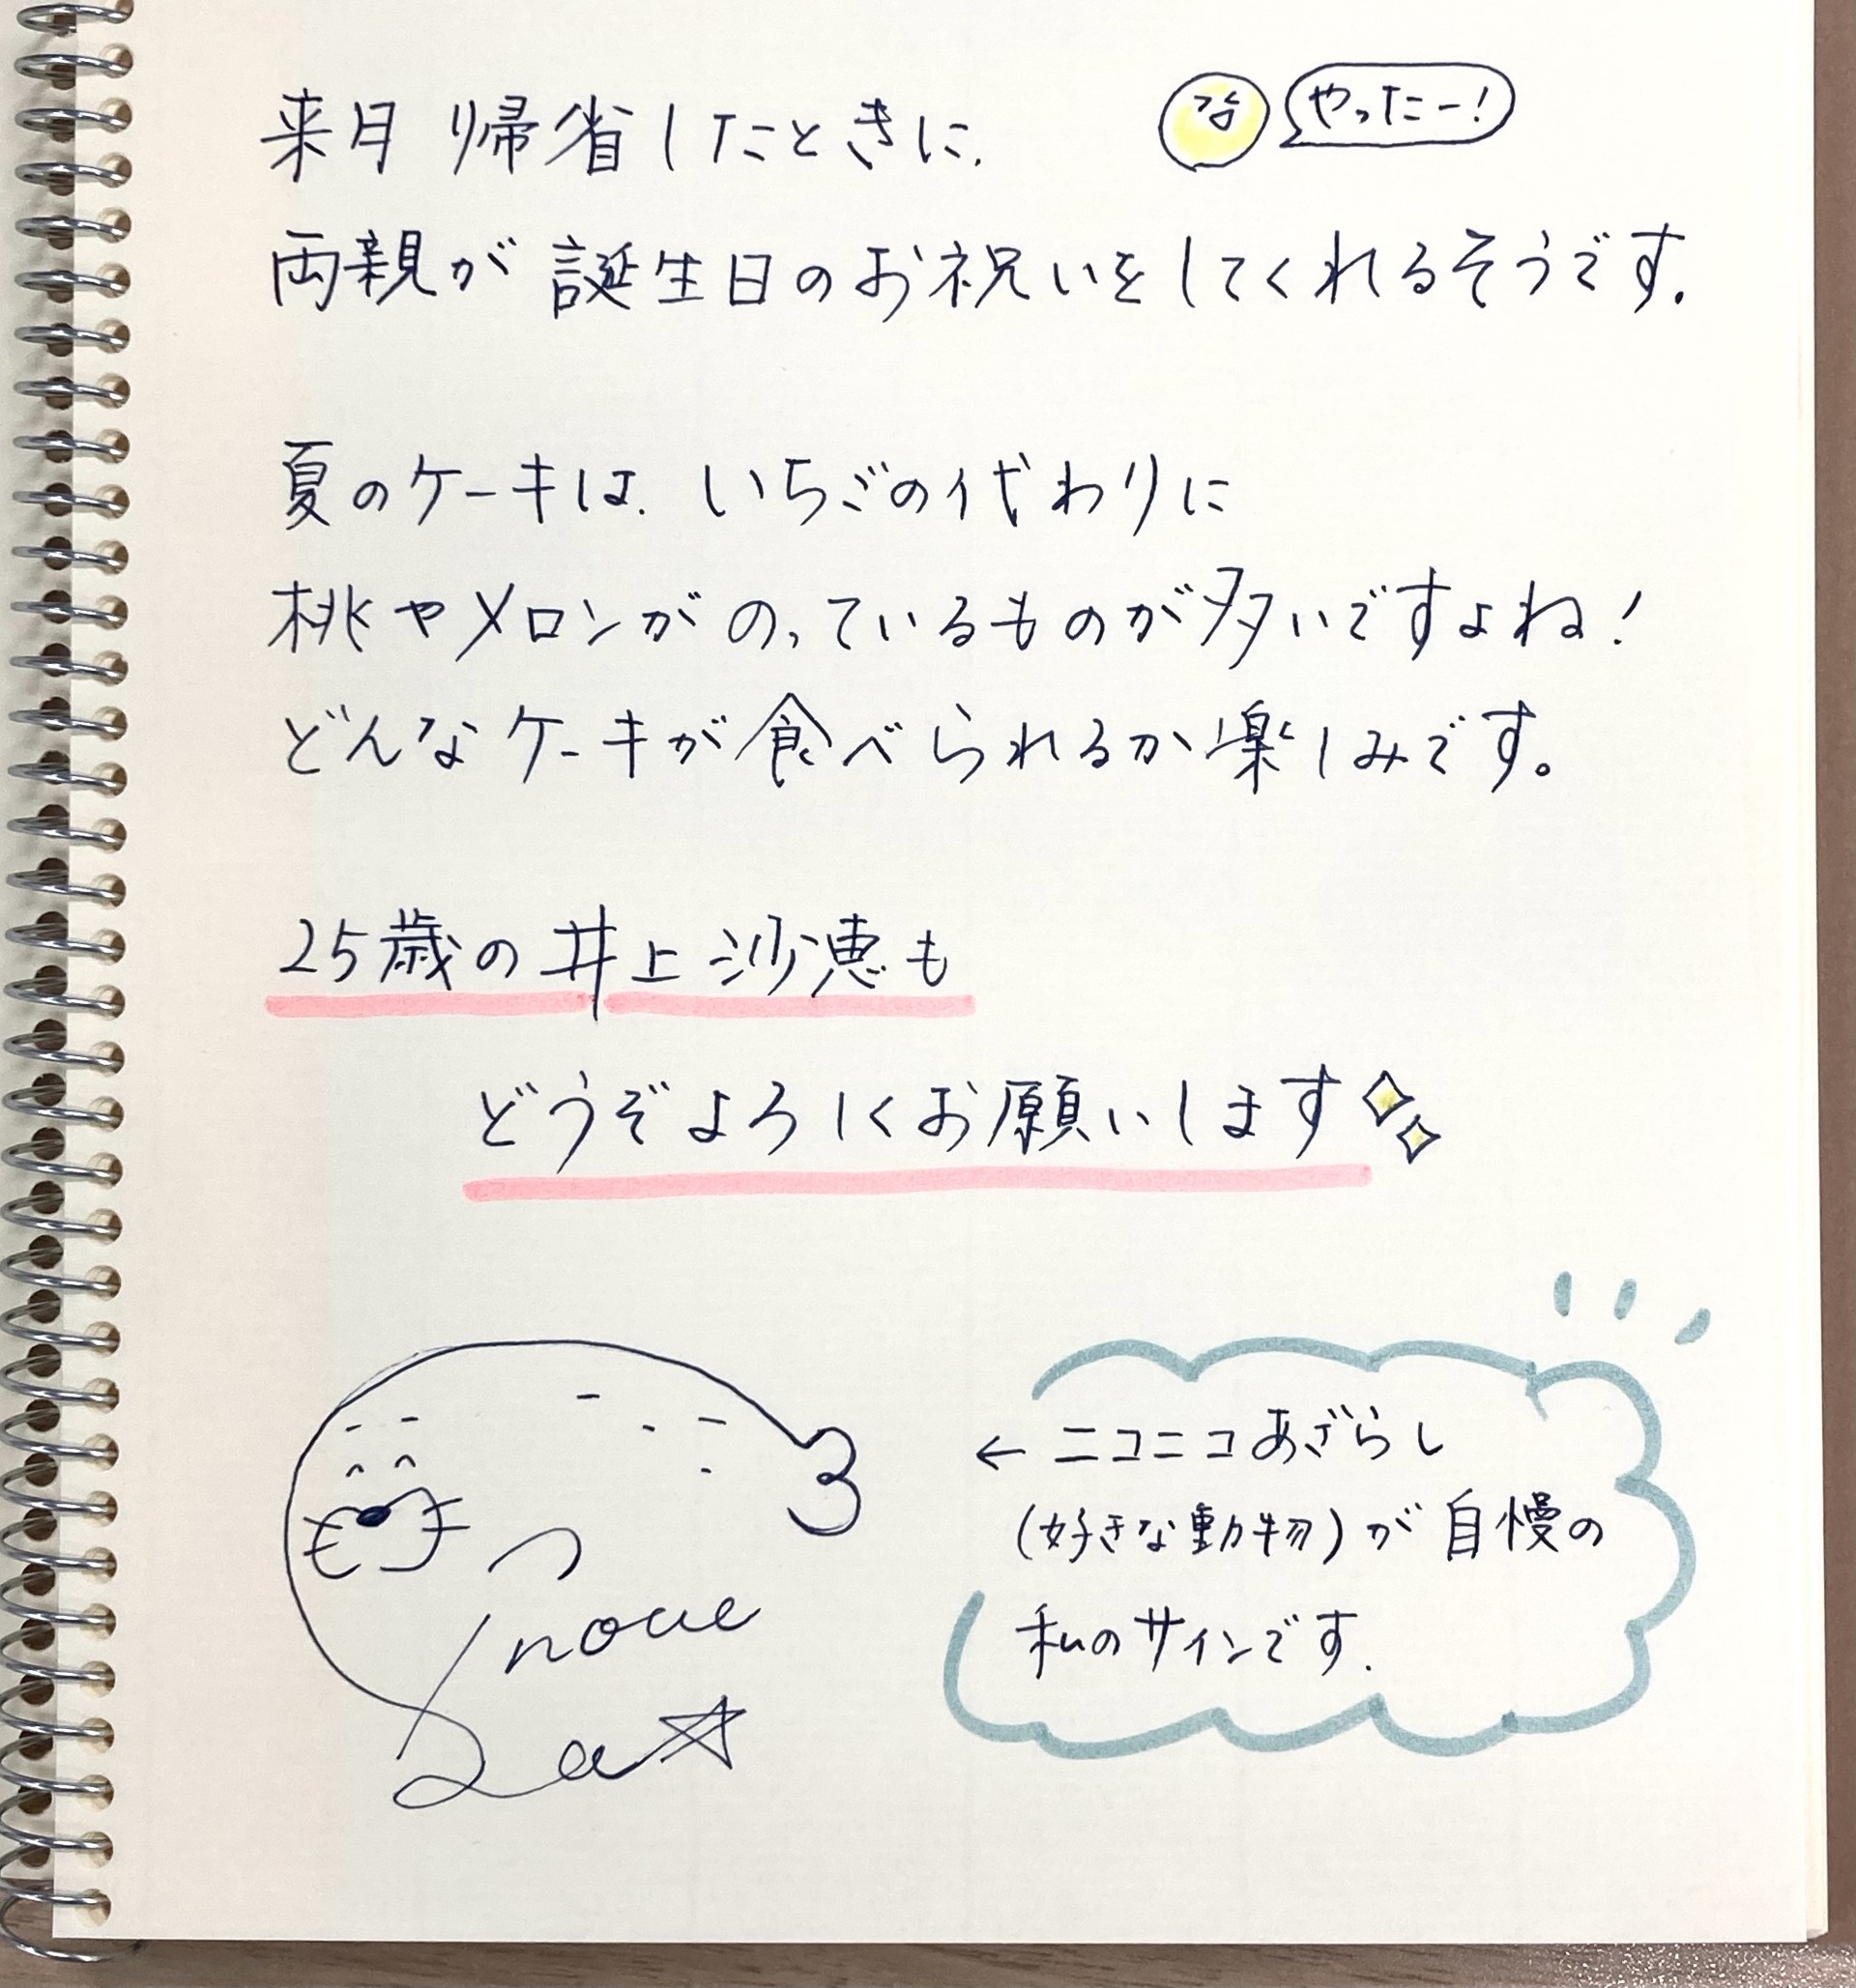 来月 帰省したときに、
やったー!
両親が 誕生日のお祝いをしてくれるそうです。
夏のケーキは、いちごの代わりに
桃やメロンがのっているものが多いですよね!
どんなケーキが食べられるか楽しみです。
25歳の井上沙恵も
どうぞよろしくお願いします
← ニコニコあざらし
(好きな動物)が自慢の
私のサインです。
Inoue
Sa